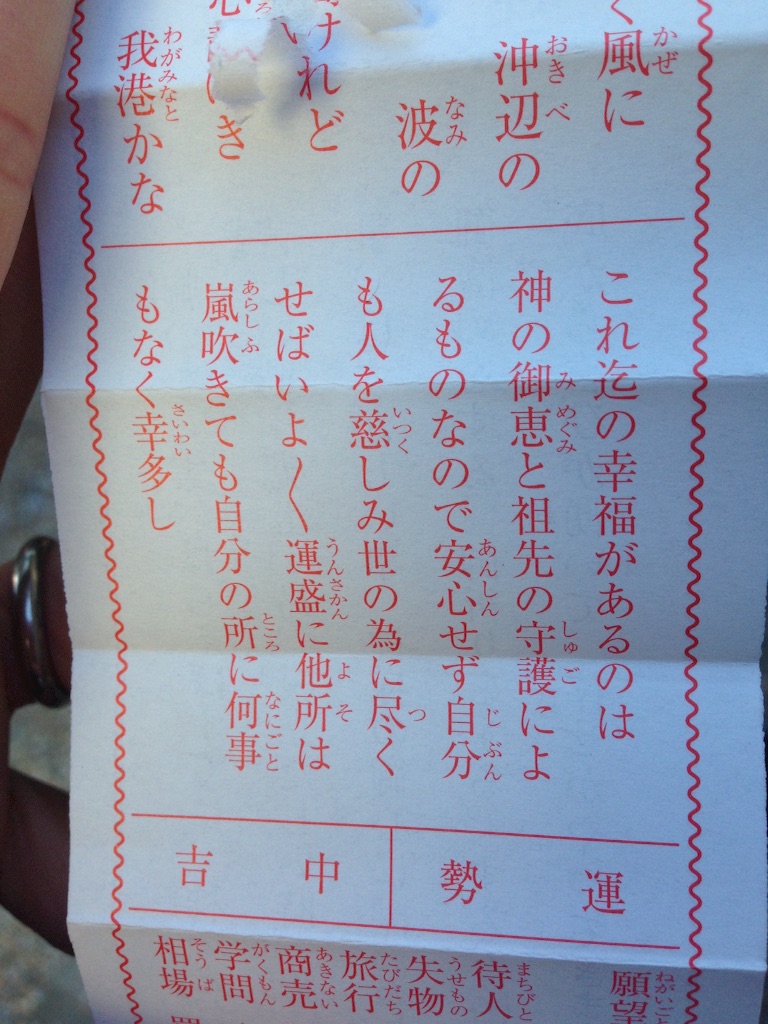 く風に
沖辺の
波の
けれど
き
我港かな
これ迄の幸福があるのは
神の御恵と祖先の守護によ
るものなので安心せず自分
も人を慈しみ世の為に尽く
せばいよ〱運盛に他所は
嵐吹きても自分の所に何事
もなく幸多し
運勢
中吉
願望
待人
失物
旅行
商売
学問
相場